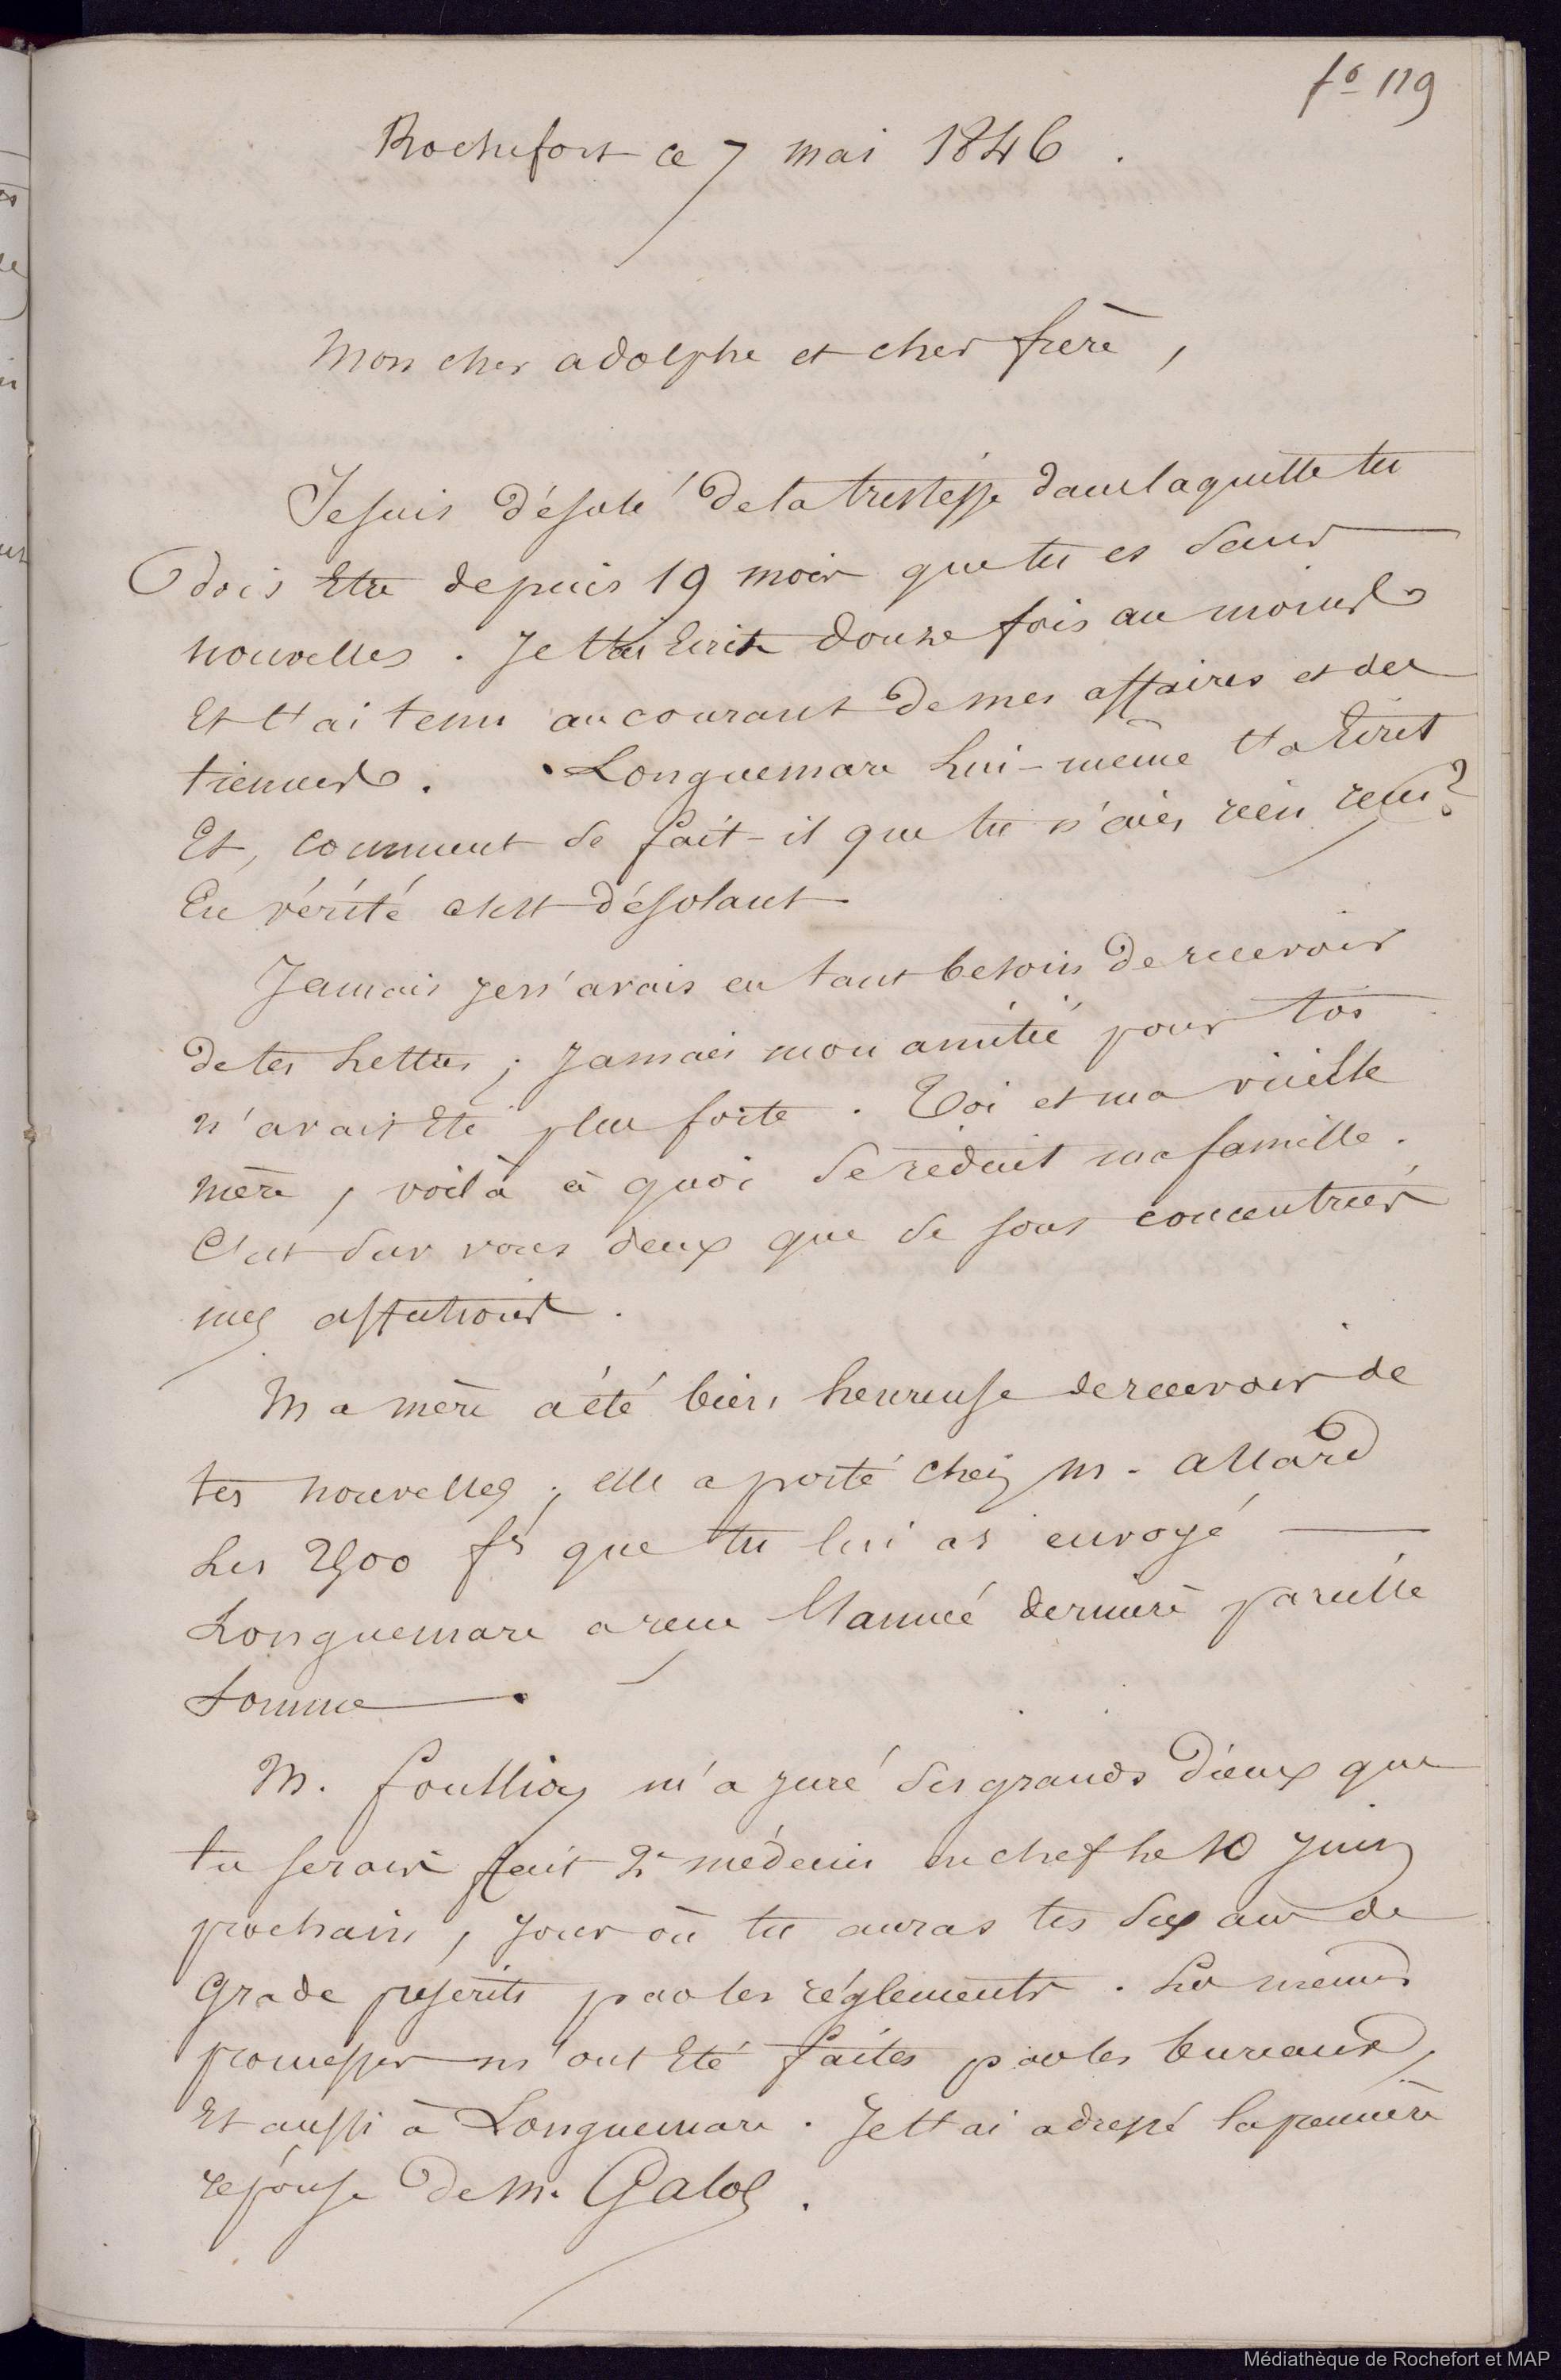 fo 119
Rochefort ce 7 mai 1846.
Mon cher adolphe et cher frère,
Je suis désolé de la tristesse dans laquelle tu
dois Etre depuis 19 mois que tu es sans
nouvelles. Je t'ai Ecrit douze fois au moins
Et t'ai tenu au courant de mes affaires et des
tiennes. Longuemare lui-même t'a Ecrit
Et, comment se fait-il que tu n'aies rien reçu?
En vérité c'est désolant
Jamais je n'avais eu tant besoin de recevoir
de tes lettres; jamais mon amitié pour toi
n'avait Eté plus forte. Toi et ma vieille
mère, voilà à quoi se réduit ma famille.
C'est sur vous deux que se sont concentrées
mes affections.
Ma mère a été bien heureuse de recevoir de
tes nouvelles; elle a porté chez M. Allard
les 2900 fs que tu lui as envoyé
Longuemare a reçu l'année dernière pareille
somme.
M. foullioy m'a juré ses grands dieux que
tu serais fait 2e médecin en chef le 10 Juin
prochain, jour où tu auras tes six ans de
grade prescrits par les réglements. Les memes
promesses m'ont Eté faites par les bureaux,
Et aussi à Longuemare. Je t'ai adressé la première
réponse de M. Galos.
Médiathèque de Rochefort et MAP